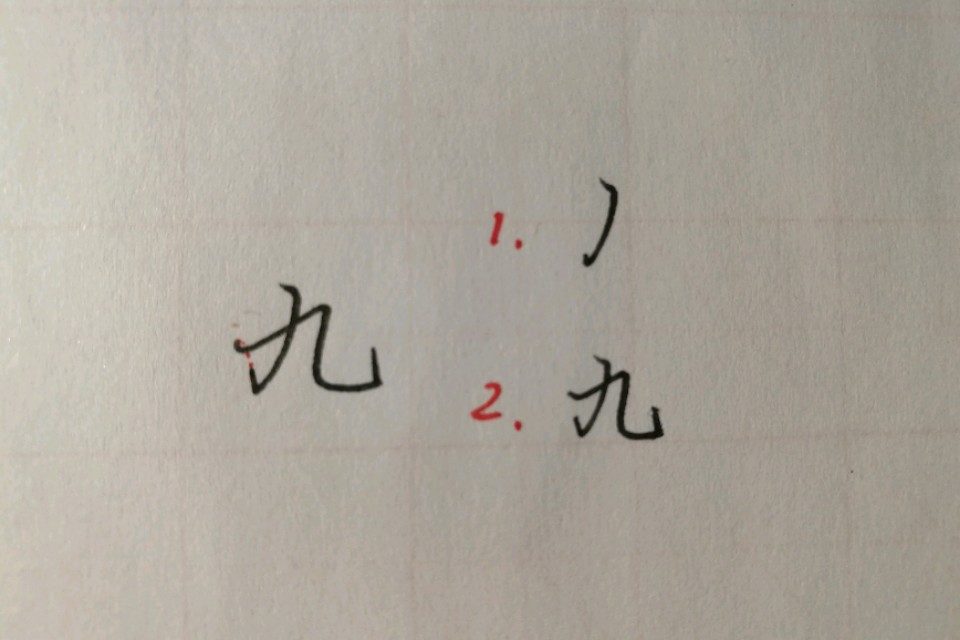 1. 丿
九
2. 九